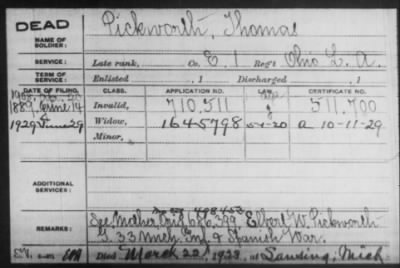 DEAD
Pickworth, Thomas
NAME OF SOLDIER:
SERVICE: Late rank, Co. E, 1 Reg't Ohio L. A.
TERM OF SERVICE: Enlisted , 1 Discharged , 1
DATE OF FILING. CLASS. APPLICATION NO. LAW. CERTIFICATE NO.
1889 June 14 Invalid, 710,511 511,700
1929 June 29 Widow, 1645798 a 10-11-29
Minor,
ADDITIONAL SERVICES:
REMARKS: See Mother Elbert W. Pickworth
33 Mich. Inf. & Spanish War.
Died March 22, 1923, at Lansing, Mich.